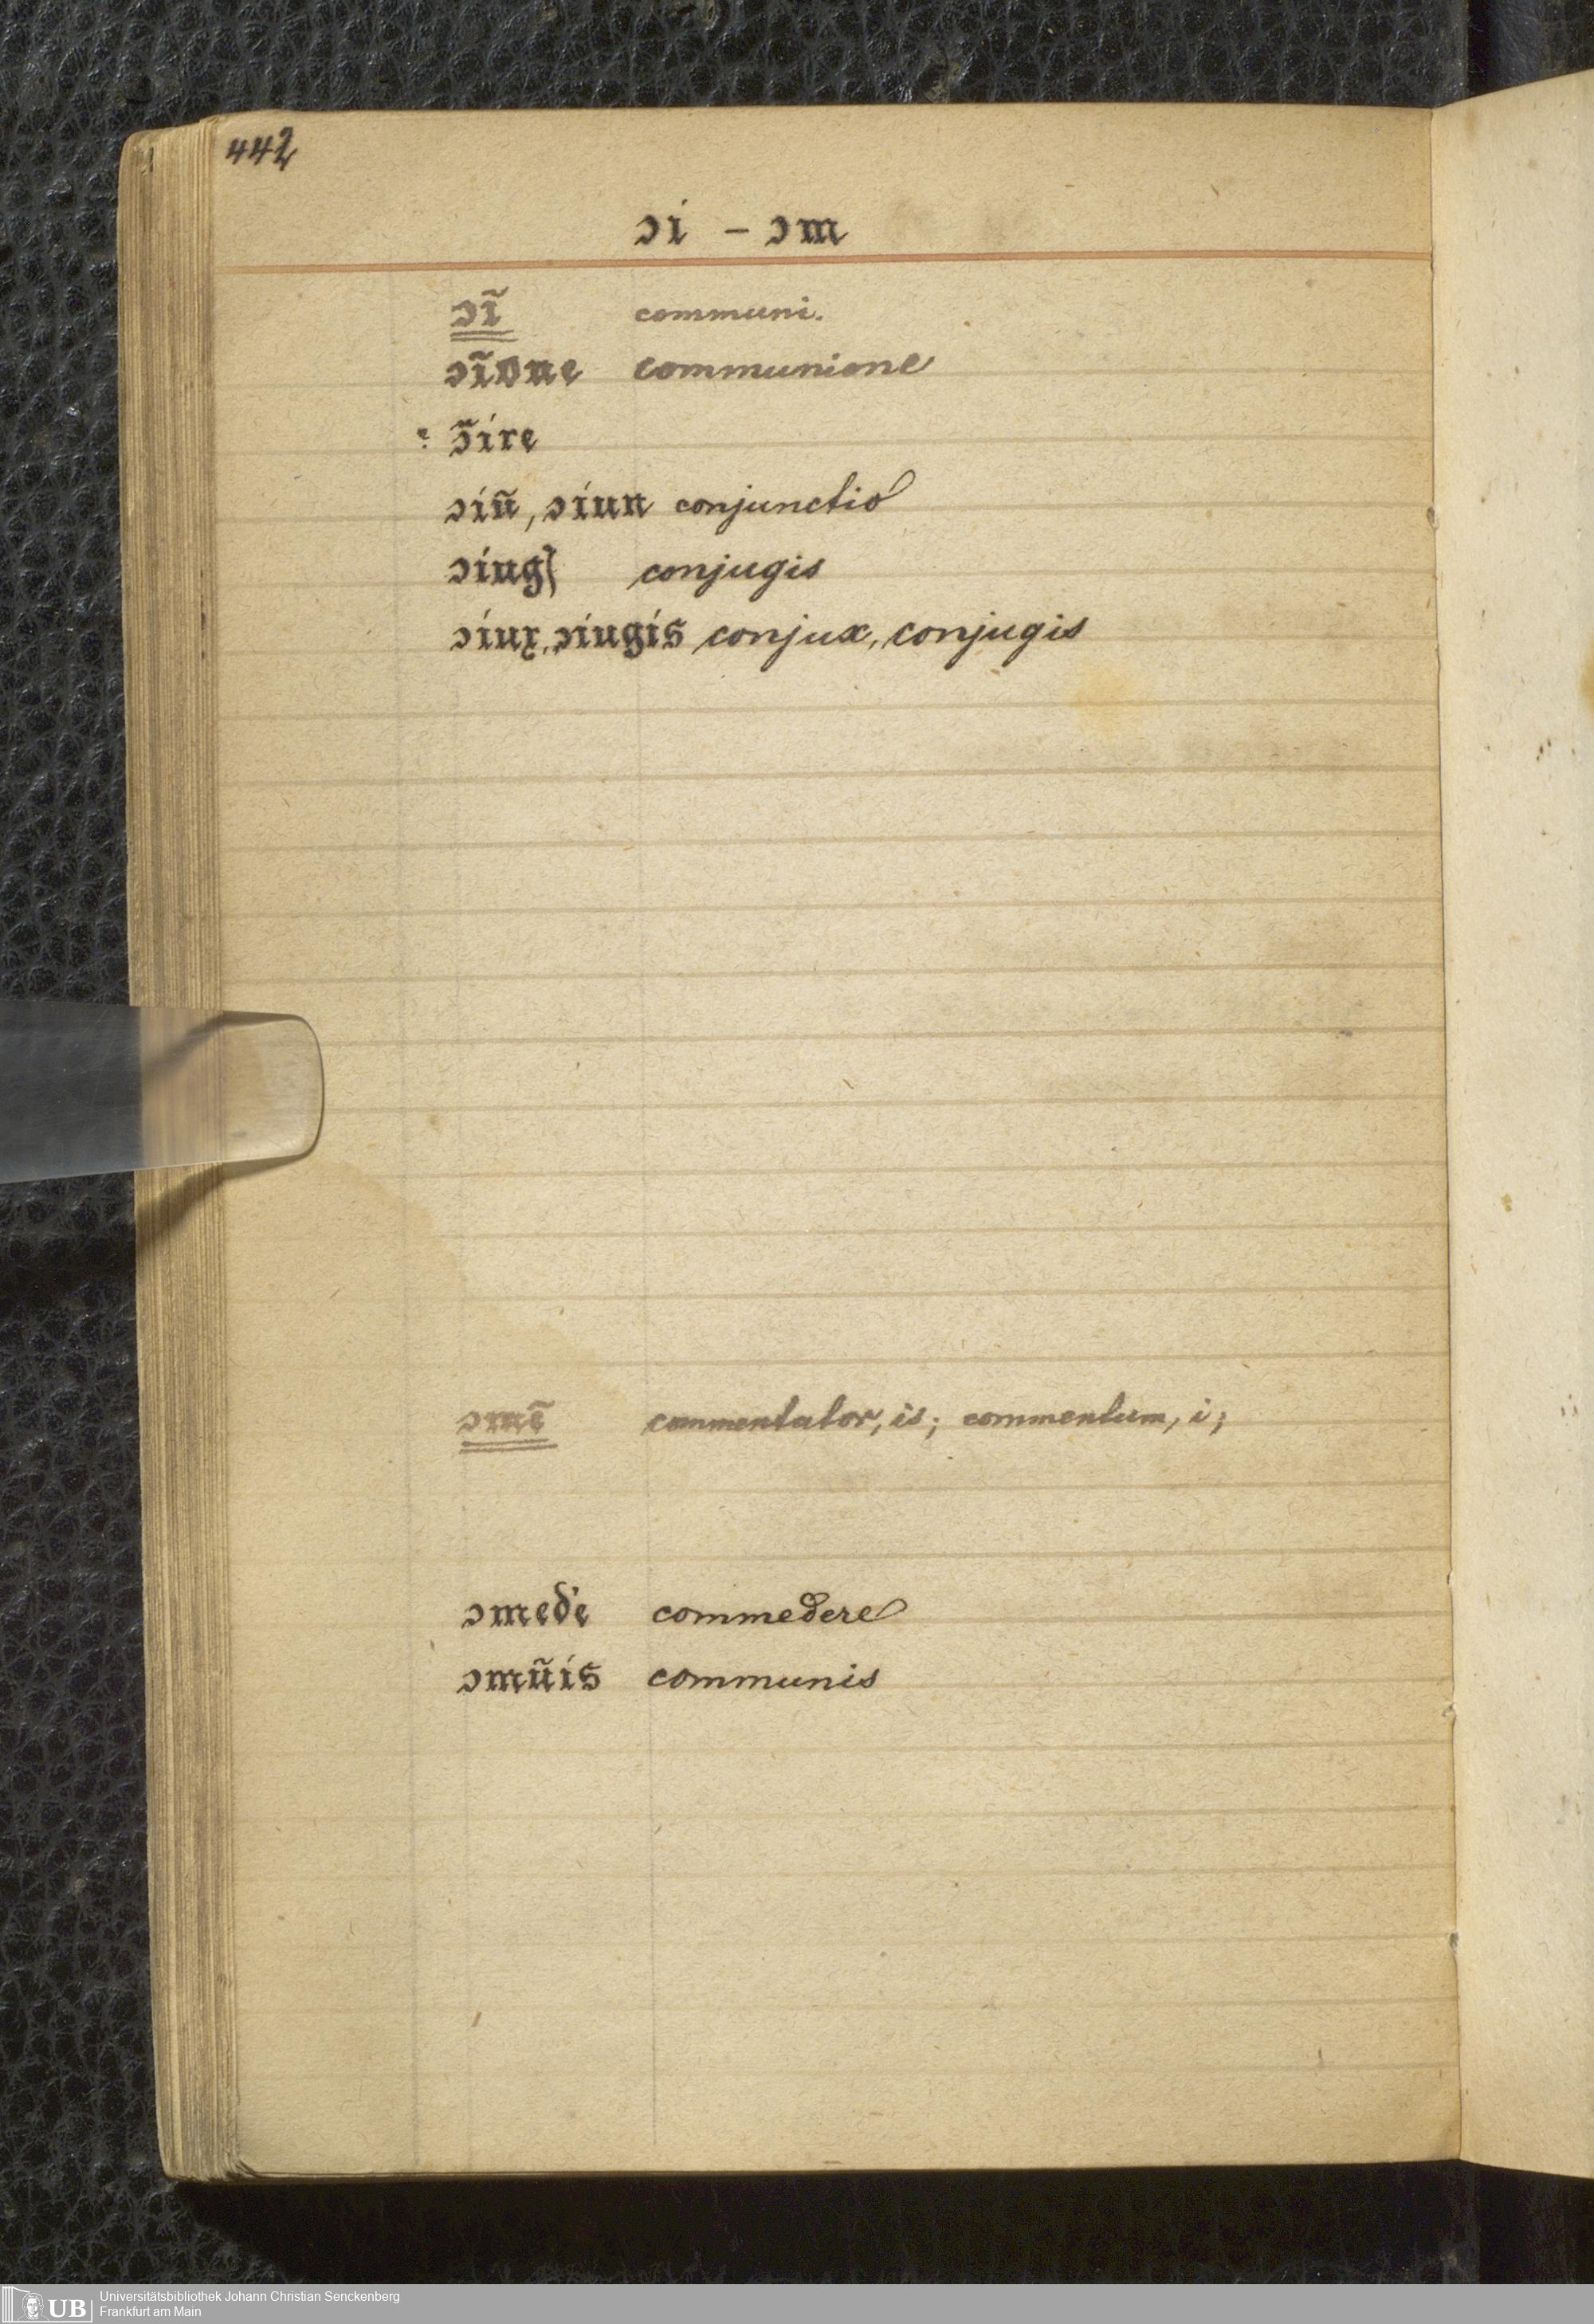 442
ɔi – ɔm
ɔĩ communi.
ɔĩone communione
ɔ̃ire
ɔiñ, ɔiun conjunctio
ɔiug conjugis
ɔiux, ɔiugis conjux, conjugis
ɔmẽ commentator, is; commentum, i;
ɔmed'e commedere
ɔmũis communis
UB Universitätsbibliothek Johann Christian Senckenberg
Frankfurt am Main